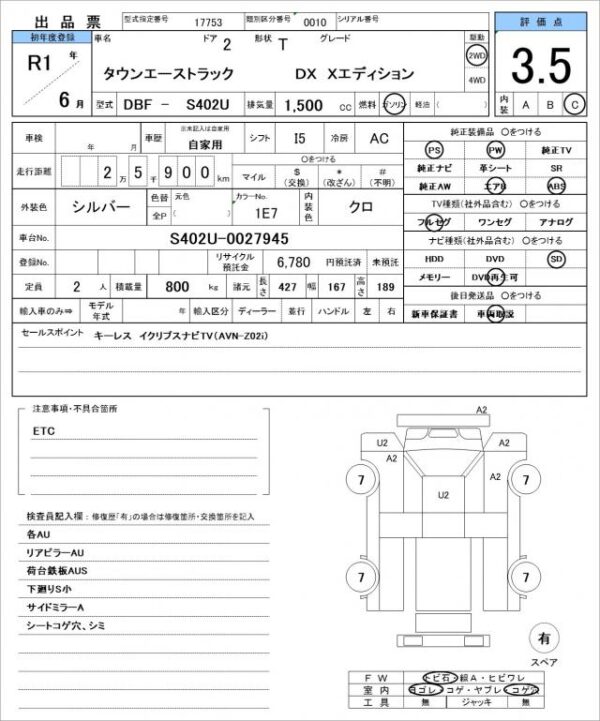 出品票 型式指定番号 17753 類別区分番号 0010 シリアル番号
評価点
初年度登録 車名 ドア 2 形状 T グレード 駆動
R1 年 6 月
タウンエーストラック DX Xエディション
2WD
4WD
3.5
型式 DBF - S402U 排気量 1,500 cc 燃料 ガソリン 軽油 ( )
内装 A B C
車検 年 月 車歴 ※未記入は自家用 自家用 シフト I5 冷房 AC
走行距離 2万5千900km ○をつける マイル $(交換) *(改ざん) #(不明)
外装色 シルバー 色替 全P 元色 ( ) カラーNo. 1E7 内装色 クロ
車台No. S402U-0027945
登録No. リサイクル預託金 6,780 円預託済 未預託
定員 2 人 積載量 800 kg 諸元 長さ 427 幅 167 高さ 189
輸入車のみ⇒ モデル年式 年 輸入区分 ディーラー 並行 ハンドル 左 右
純正装備品 ○をつける
PS PW 純正TV
純正ナビ 革シート SR
純正AW エアB ABS
TV種類(社外品含む) ○をつける
フルセグ ワンセグ アナログ
ナビ種類(社外品含む) ○をつける
HDD DVD SD
メモリー DVD再生可
後日発送品 ○をつける
新車保証書 車両取説
セールスポイント キーレス イクリプスナビTV(AVN-Z02i)
注意事項・不具合箇所
ETC
検査員記入欄:修復歴「有」の場合は修復箇所・交換箇所を記入
各AU
リアピラーAU
荷台鉄板AUS
下廻りS小
サイドミラーA
シートコゲ穴、シミ
A2
U2 A2
A2 A2
7 U2 7
7 7
有
スペア
FW トビ石・線A・ヒビワレ
室内 ヨゴレ・コゲ・ヤブレ・コゲ穴
工具 無 ジャッキ 無